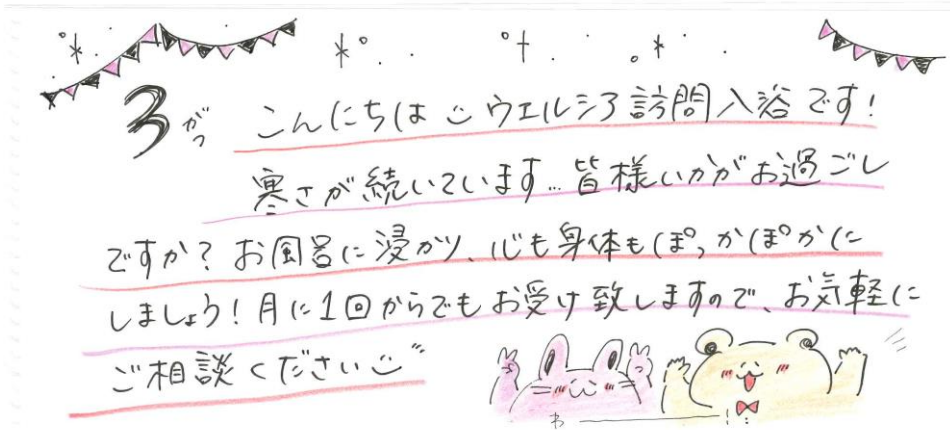 3がつ こんにちは☺ウエルシア訪問入浴です!
寒さが続いています…皆様いかがお過ごし
ですか?お風呂に浸かり、心も身体もぽっかぽかに
しましょう!月に1回からでもお受け致しますので、お気軽に
ご相談ください☺
わ ー !